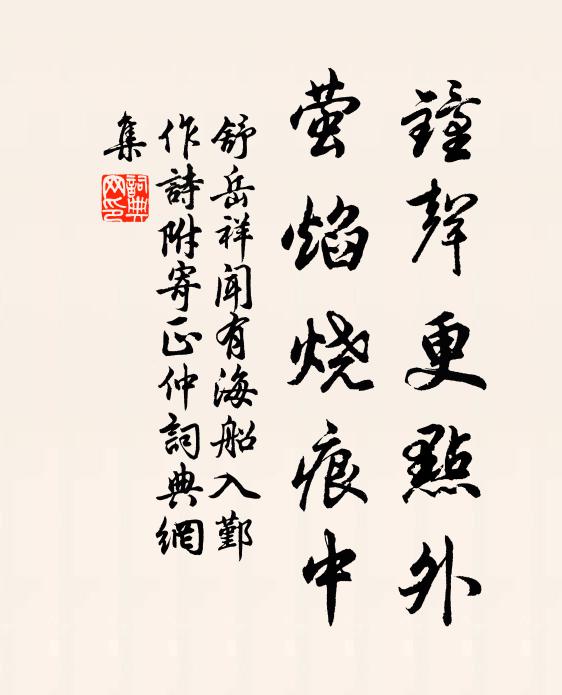 鐘聲更點外
萤焰烧痕中
舒岳祥闻有海船入鄞
作詩附寄正仲詞典網
集
詞典
网印